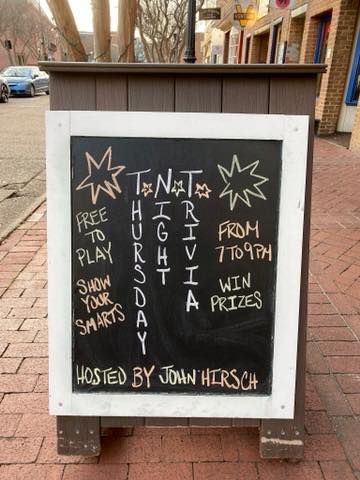 T N T
THURSDAY
NIGHT
TRIVIA
FREE
TO
PLAY
SHOW
YOUR
SMARTS
FROM
7 TO 9 PM
WIN
PRIZES
HOSTED BY JOHN HIRSCH